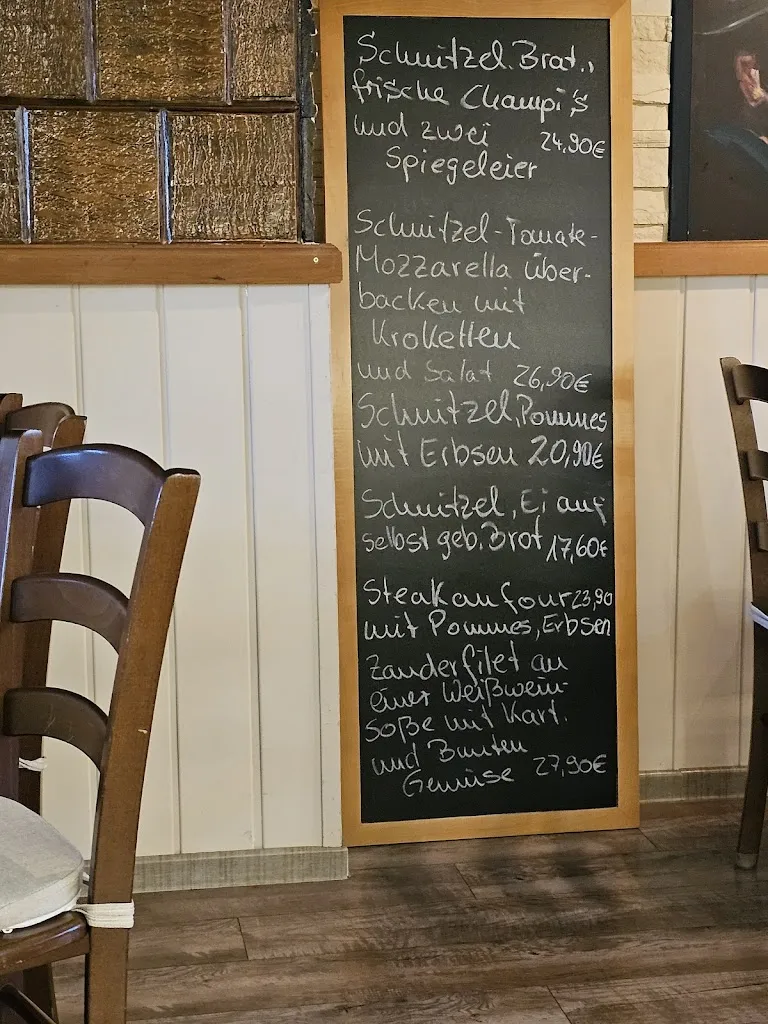 Schnitzel. Brat.,
frische Champi's
und zwei 24,90€
Spiegeleier
Schnitzel-Tomate-
Mozzarella über-
backen mit
Kroketten
und Salat 26,90€
Schnitzel, Pommes
mit Erbsen 20,90€
Schnitzel, Ei auf
selbst geb. Brot 17,60€
Steak au four 23,90
mit Pommes, Erbsen
Zanderfilet an
einer Weißwein-
soße mit Kart.
und Bunten
Gemüse 27,90€